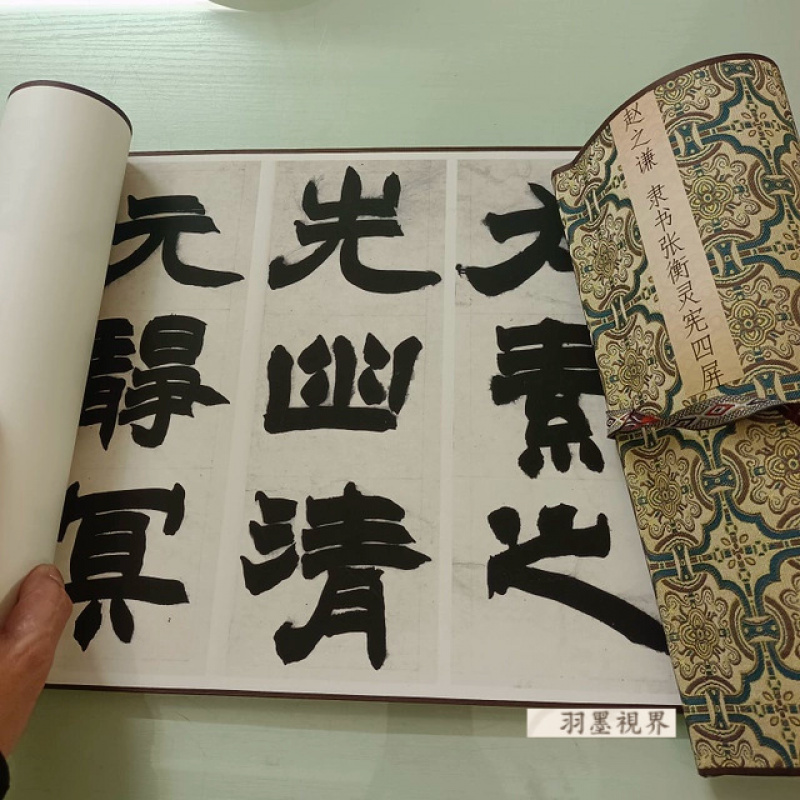 赵之谦 隶书张衡灵宪四屏
太素之
先幽清
元靜冥
羽墨視界